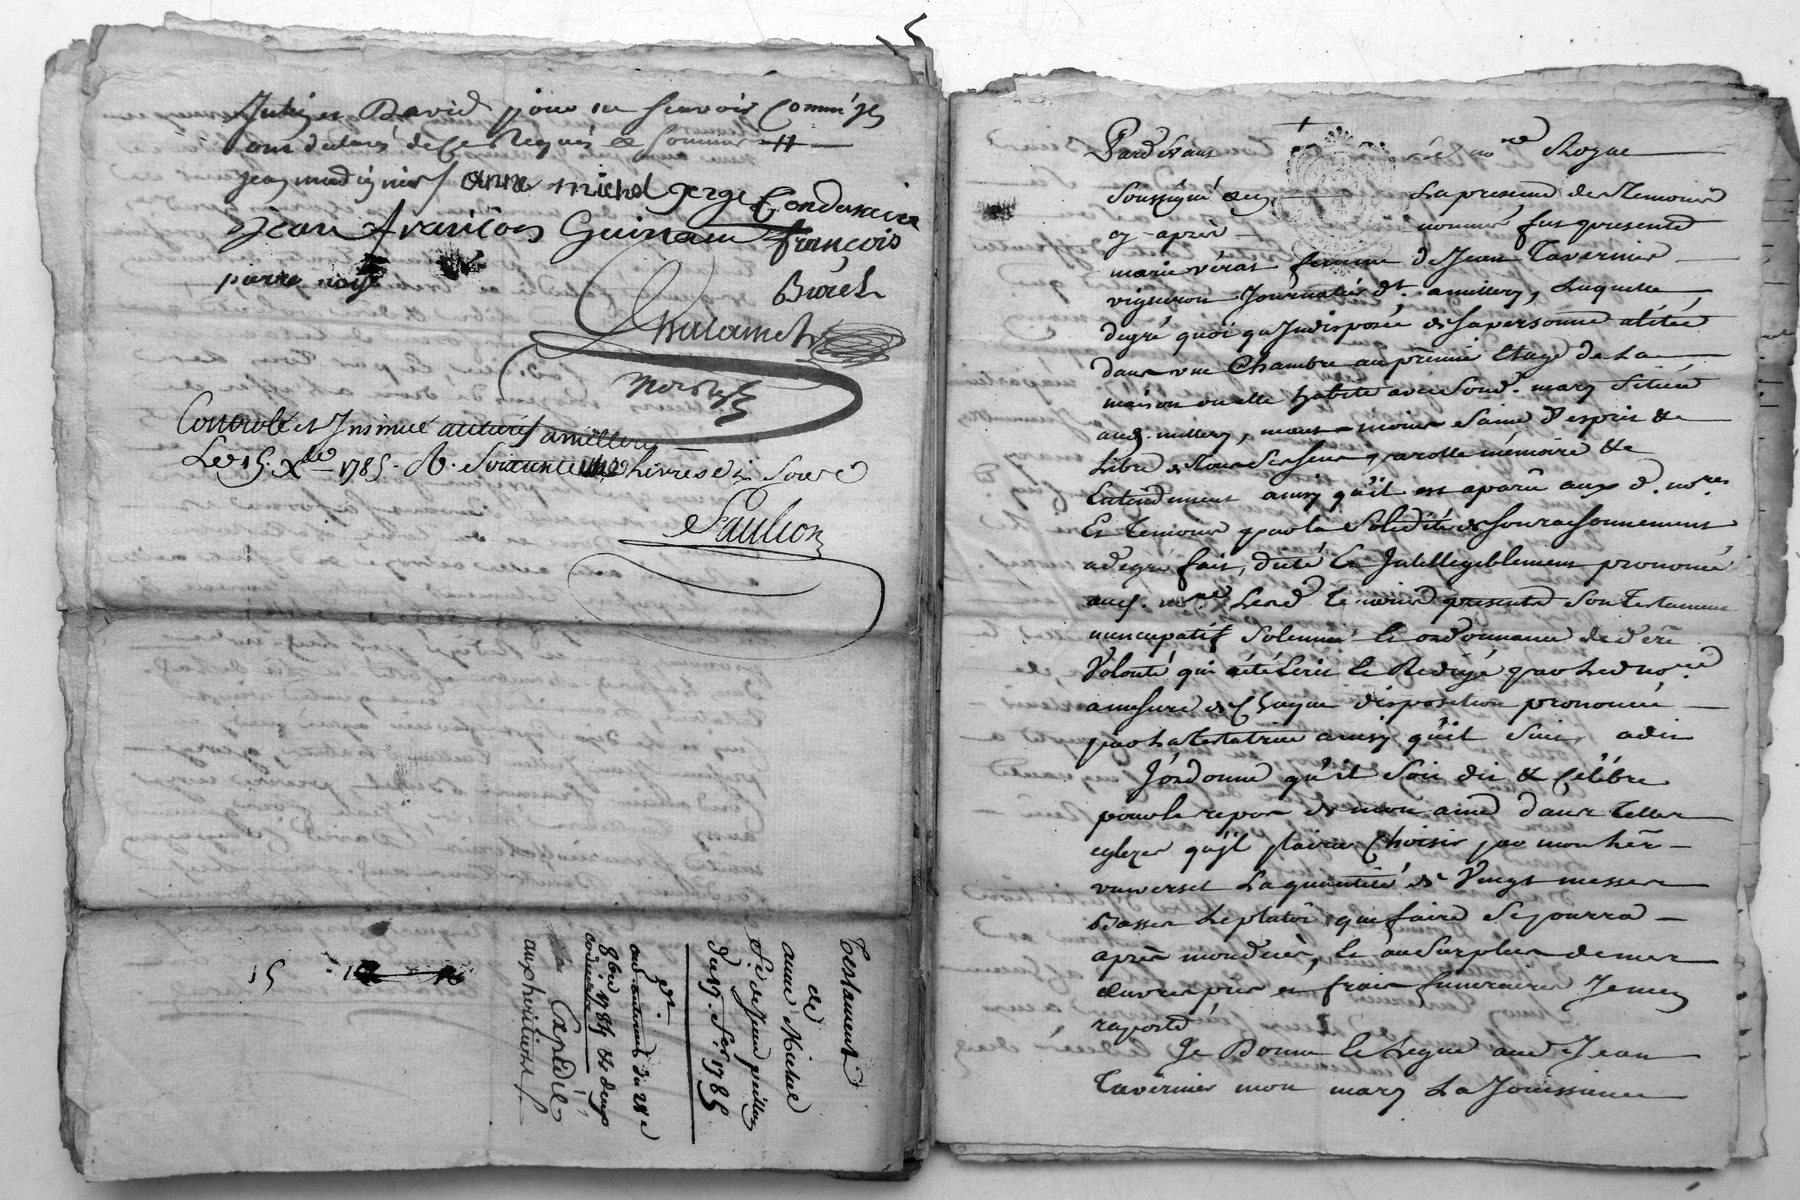 Julien David pour ne sçavoir Comm'ils
ont declarés de ce Requis & sommés
jean anne michel Serge Condamine
jean françois Guinand françois
pierre Burel
Chalamel
Controlé et Insinué au tarif a millery
Le 15 Xbre 1785. R. Soixante Livres Sous
Saulion
15
Testament
de
anne Michel
du 17. 7bre 1785
et
aud du 28
8bre 1784 & deux
codiciles
Expédié
aux heritiers
Pardevant no.re Royal
soussigné & en La presence des Temoins
cy-après nommés fut presente
marie véras femme de Jean Tavernier
vigneron Journalier dt. a millery, Laquelle
degré quoi qu'Indisposée de sa personne alitée
dans une Chambre au premier Etage de La
maison ou elle habite avec sond. mary située
aud. millery, neant-moins saine d'esprit &
Libre de tous ses sens parolle mémoire &
Entendement ainsy qu'il est aparu auxd. no.res
Et Temoins par la solidité de son raisonnement
a de gré fait, dicté & Intelligiblement prononcé
aud. no.re Lesd Temoins presents son testament
nuncupatif solennel & ordonnance de dere
Volonté qui a été Ecrit & Redigé par Led no.re
a mesure de Chaque disposition prononcée
par La testatrice ainsy qu'il suit, a dit
J'ordonne qu'il soit dit & Célébré
pour le repos de mon ame dans telles
eglizes qu'il plaira Choisir par mon hér.
universel La quantité de Vingt messes
Basses Le plutôt que faire se pourra
après mon decès, & au surplus de mes
œuvres pies et frais funeraires Je m'en
raporte
Je Donne & Legue aud Jean
Tavernier mon mary La Jouissance